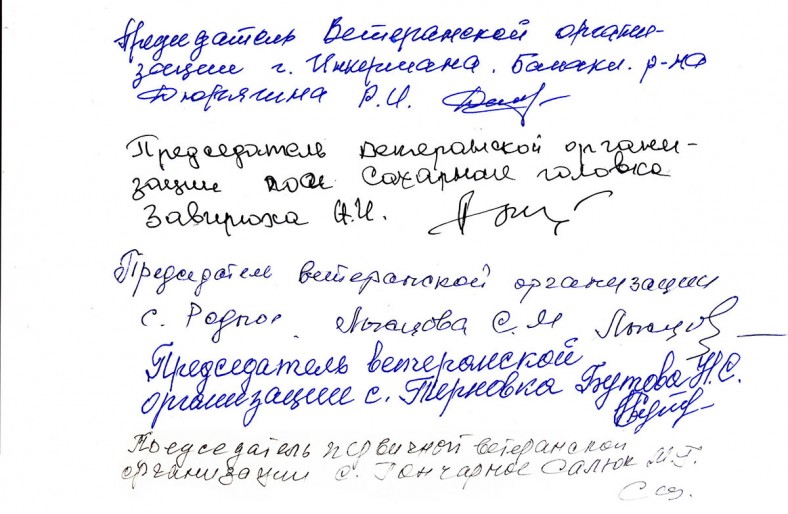 Председатель Ветеранской органи-
зации г. Инкермана. Балакл. р-на
Р.И.
Председатель ветеранской органи-
зации пос Сахарная головка
Завирюха Н.И.
Председатель ветеранской организации
с. Родное С.М
Председатель ветеранской
организации с. Терновка Бутова Н.С.
Председатель первичной ветеранской
организации с. Гончарное Салюк М.Г.